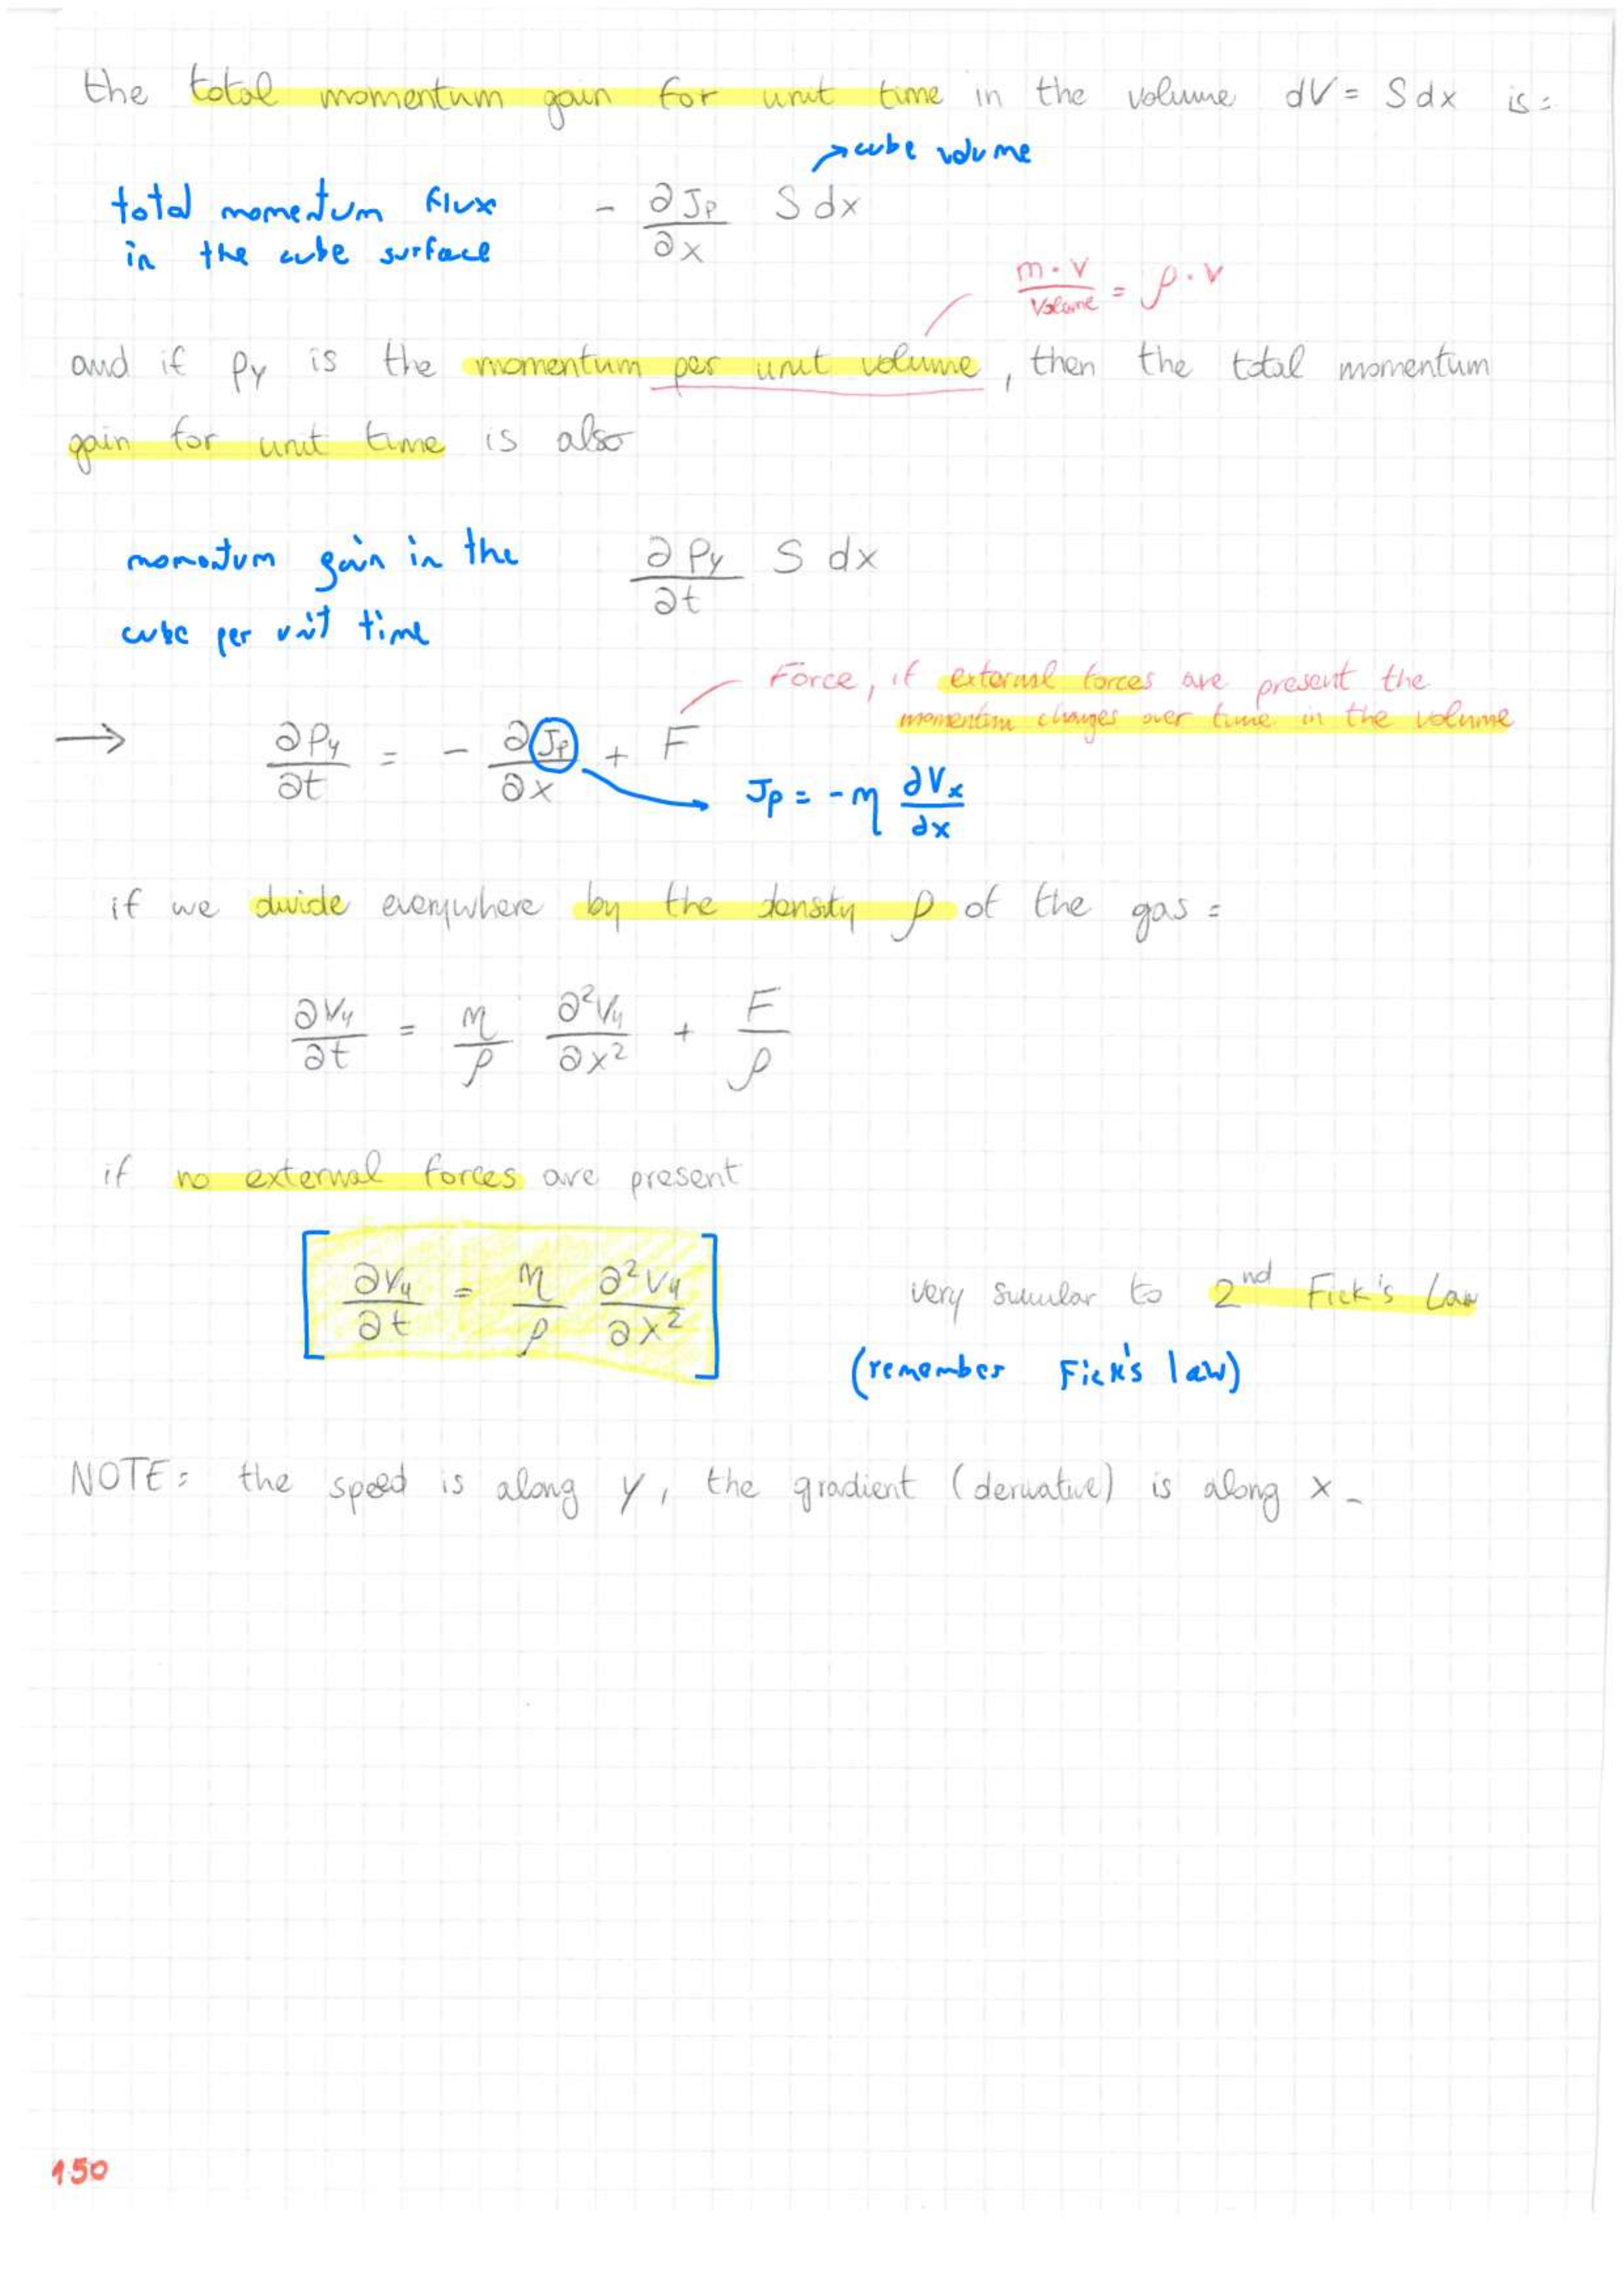 the total momentum gain for unit time in the volume dV = S dx is:
→ cube volume
total momentum flux
in the cube surface
- ∂Jp/∂x S dx
m · v / Volume = ρ · v
and if Py is the momentum per unit volume, then the total momentum
gain for unit time is also
momentum gain in the
cube per unit time
∂Py/∂t S dx
Force, if external forces are present the
momentum changes over time in the volume
→ ∂Py/∂t = - ∂Jp/∂x + F
Jp = -η ∂Vx/∂x
if we divide everywhere by the density ρ of the gas:
∂Vy/∂t = η/ρ ∂²Vy/∂x² + F/ρ
if no external forces are present
[ ∂Vy/∂t = η/ρ ∂²Vy/∂x² ]
very similar to 2nd Fick's Law
(remember Fick's law)
NOTE: the speed is along y, the gradient (derivative) is along x -
150